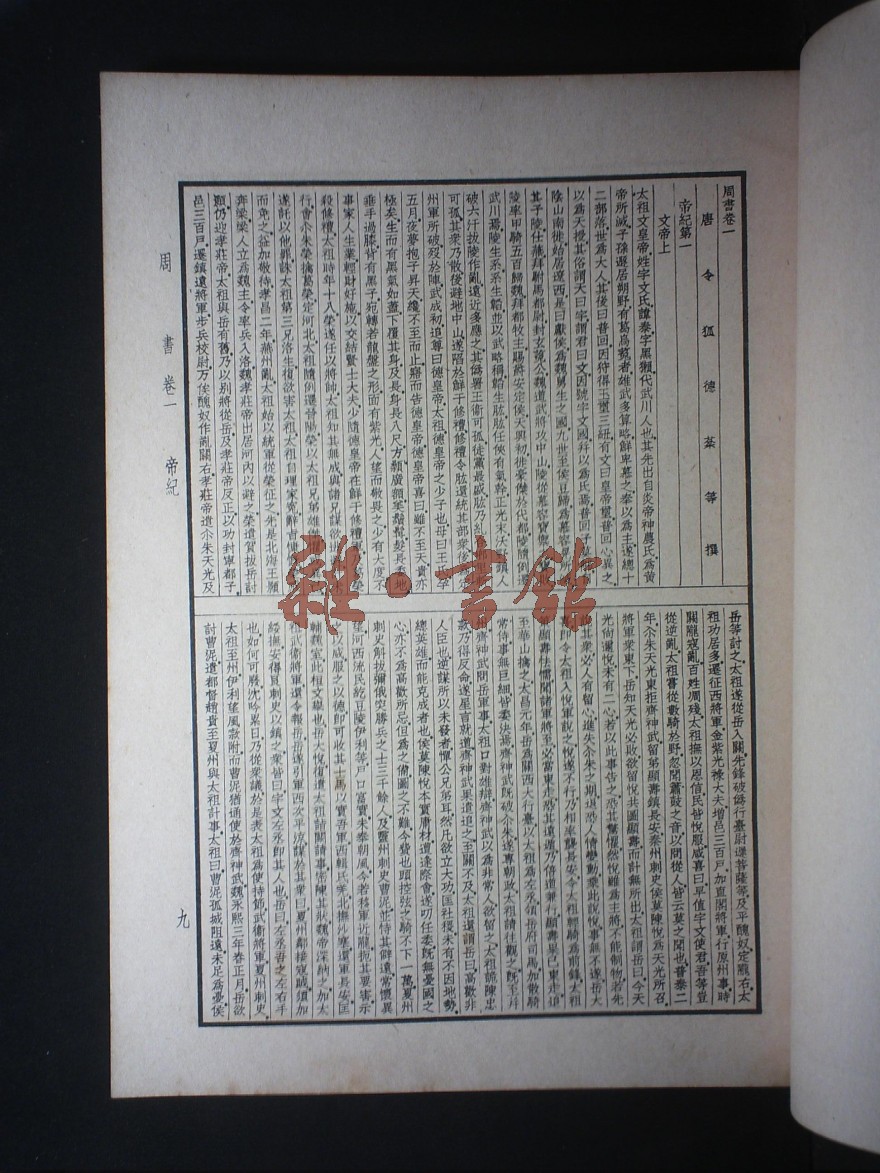 周書卷一
唐令狐德棻等撰
帝紀第一
文帝上
太祖文皇帝姓宇文氏諱泰字黑獺代武川人也其先出自炎帝神農氏爲黃
帝所滅子孫遯居朔野有葛烏菟者雄武多算略鮮卑慕之奉以爲主遂總十
二部落世爲大人其後曰普回因狩得玉璽三紐有文曰皇帝璽普回心異之
以爲天授其俗謂天曰宇謂君曰文因號宇文國幷以爲氏焉普回子
陰山南徙始居遼西是曰獻侯爲魏舅生之國九世至侯豆歸爲慕容晃所
其子陵仕燕拜駙馬都尉封玄菟公魏道武將攻中山陵從慕容寶禦之寶
陵率甲騎五百歸魏拜都牧主賜爵安定侯天興初徙豪傑於代都陵隨例遷
武川焉陵生系系生韜並以武略稱韜生肱肱任俠有氣幹正光末沃野鎮人
破六汗拔陵作亂遠近多應之其僞署王衛可孤徒黨最盛肱乃糾
可孤其衆乃散後避地中山遂陷於鮮于修禮修禮令肱還統其部衆後
州軍所破歿於陣武成初追尊曰德皇帝太祖德皇帝之少子也母曰王氏孕
五月夜夢抱子昇天纔不至而止寤而告德皇帝德皇帝喜曰雖不至天貴亦
極矣生而有黑氣如蓋下覆其身及長身長八尺方顙廣額美鬚髯髮長委地
垂手過膝背有黑子宛轉若龍盤之形面有紫光人望而敬畏之少有大度不
事家人生業輕財好施以交結賢士大夫少隨德皇帝在鮮于修禮軍
殺修禮太祖時年十八榮遂任以將帥太祖知其無成與諸兄謀
行會尒朱榮擒葛榮定河北太祖隨例遷晉陽榮以太祖兄弟雄傑
遂託以他罪誅太祖第三兄洛生復欲害太祖太祖自理家冤辭旨慷
而免之益加敬待孝昌二年燕州亂太祖始以統軍從榮征之先是北海王顥
奔梁梁人立爲魏主令率兵入洛魏孝莊帝出居河內以避之榮遣賀拔岳討
顥仍迎孝莊帝太祖與岳有舊乃以別將從岳及孝莊帝反正以功封寧都子
邑三百戶遷鎮遠將軍步兵校尉万俟醜奴作亂關右孝莊帝遣尒朱天光及
岳等討之太祖遂從岳入關先鋒破僞行臺尉遲菩薩等及平醜奴定隴右太
祖功居多遷征西將軍金紫光祿大夫增邑三百戶加直閤將軍行原州事時
關隴寇亂百姓凋殘太祖撫以恩信民皆悅服咸喜曰早值宇文使君吾等豈
從逆亂太祖嘗從數騎於野忽聞簫鼓之音以問從人皆云莫之聞也普泰二
年尒朱天光東拒齊神武留弟顯壽鎮長安秦州刺史侯莫陳悅爲天光所召
將軍衆東下岳知天光必敗欲留悅共圖顯壽而計無所出太祖謂岳曰今天
光尙邇悅未有二心若以此事告之恐其驚懼然悅雖爲主將不能制物若先
其衆必人有留心進失尒朱之期退恐人情變動乘此說悅事無不遂岳大
卽令太祖入悅軍說之悅遂不行乃相率襲長安令太祖輕騎爲前鋒太祖
顯壽怯懦聞諸軍將至必當東走恐其遠遁乃倍道兼行顯壽果已東走追
至華山擒之太昌元年岳爲關西大行臺以太祖爲左丞領岳府司馬加散騎
常侍事無巨細皆委決焉齊神武旣破尒朱遂專朝政太祖請往觀之旣至幷
齊神武問岳軍事太祖口對雄辯齊神武以爲非常人欲留之太祖詭陳忠
款乃得反命遂星言就道齊神武果遣追之至關不及太祖還謂岳曰高歡非
人臣也逆謀所以未發者憚公兄弟耳然凡欲立大功匡社稷未有不因地勢
總英雄而能克成者也侯莫陳悅本實庸材遭逢際會遂叨任委旣無憂國之
心亦不爲高歡所忌但爲之備圖之不難今費也頭控弦之騎不下一萬夏州
刺史斛拔彌俄突勝兵之士三千餘人及靈州刺史曹泥並恃其僻遠常懷異
望河西流民紇豆陵伊利等戶口富實未奉朝風今若移軍近隴扼其要害示
以威服之以德卽可收其士馬以實吾軍西輯氐羌北撫沙塞還軍長安匡
輔魏室此桓文舉也岳大悅復遣太祖詣闕請事密陳其狀魏帝深納之加太
祖武衛將軍還令報岳岳遂引軍西次平涼謀於其衆曰夏州鄰接寇賊須加
綏撫安得良刺史以鎮之衆皆曰宇文左丞卽其人也岳曰左丞吾之左右手
也如何可廢沈吟累日乃從衆議於是表太祖爲使持節武衛將軍夏州刺史
太祖至州伊利望風款附而曹泥猶通使於齊神武魏永熙三年春正月岳欲
討曹泥遣都督趙貴至夏州與太祖計事太祖曰曹泥孤城阻遠未足爲憂侯
周書卷一 帝紀
九
雜·書館